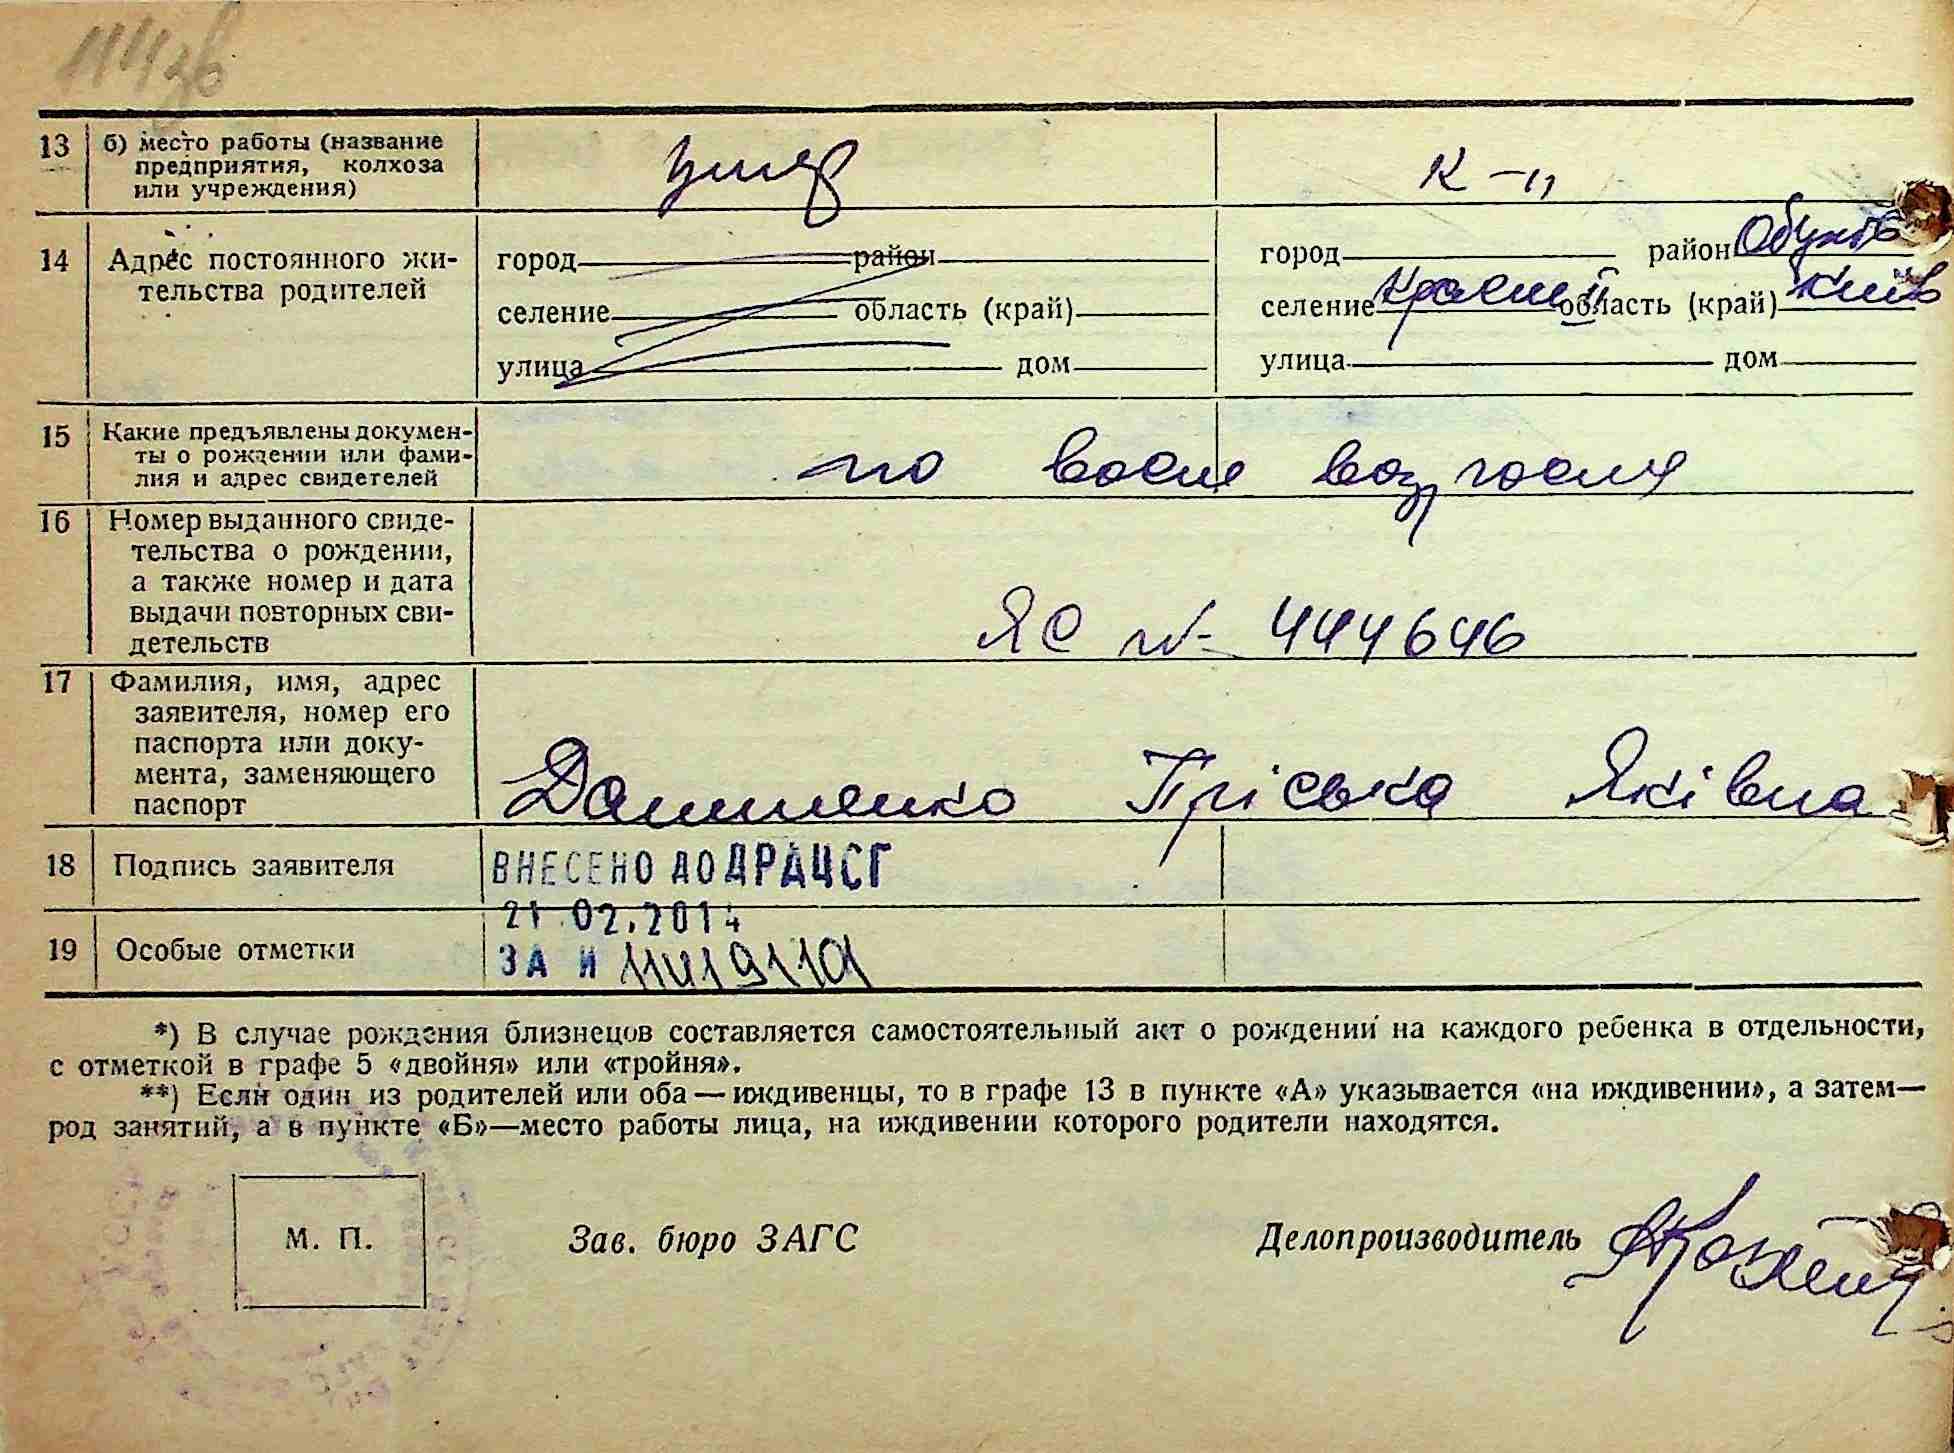 13 б) место работы (название
предприятия, колхоза
или учреждения)
умер
к-п
14 Адрес постоянного жи-
тельства родителей
город район
селение область (край)
улица дом
город район Обухів
селение область (край) Київ
улица дом
15 Какие предъявлены докумен-
ты о рождении или фами-
лия и адрес свидетелей
по
16 Номер выданного свиде-
тельства о рождении,
а также номер и дата
выдачи повторных сви-
детельств
ЯС № 444646
17 Фамилия, имя, адрес
заявителя, номер его
паспорта или доку-
мента, заменяющего
паспорт
Пріська Яківна
18 Подпись заявителя
ВНЕСЕНО ДО ДРАЦСГ
21.02.2014
19 Особые отметки
ЗА №
*) В случае рождения близнецов составляется самостоятельный акт о рождении на каждого ребенка в отдельности,
с отметкой в графе 5 «двойня» или «тройня».
**) Если один из родителей или оба — иждивенцы, то в графе 13 в пункте «А» указывается «на иждивении», а затем—
род занятий, а в пункте «Б»—место работы лица, на иждивении которого родители находятся.
М. П.
Зав. бюро ЗАГС
Делопроизводитель